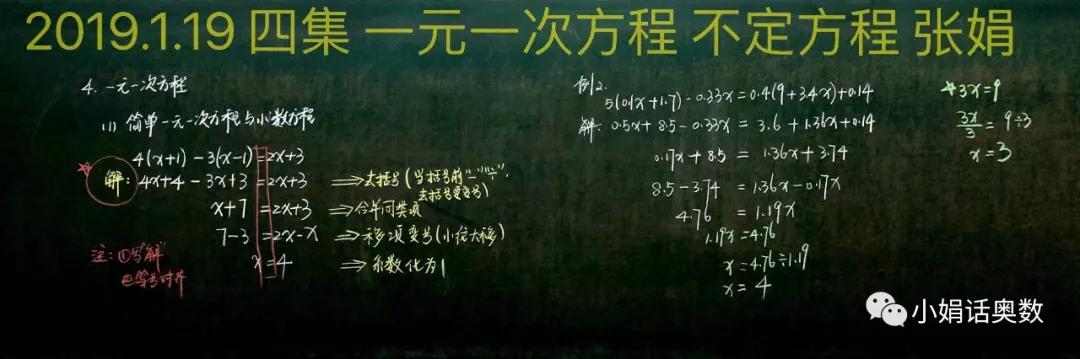 2019.1.19 四集 一元一次方程 不定方程 张娟
4. 一元一次方程
(1) 简单一元一次方程与小数方程
4(x+1) - 3(x-1) = 2x+3
解: 4x+4 - 3x+3 = 2x+3 ⟹ 去括号(当括号前"-""÷",
去括号要变号)
x+7 = 2x+3 ⟹ 合并同类项
7-3 = 2x-x ⟹ 移项变号(小往大移)
x = 4 ⟹ 系数化为1
注: ①写"解"
②等号对齐
例2.
5(0.1x+1.7) - 0.33x = 0.4(9+3.4x)+0.14
解: 0.5x+8.5-0.33x = 3.6+1.36x+0.14
0.17x+8.5 = 1.36x+3.74
8.5-3.74 = 1.36x-0.17x
4.76 = 1.19x
1.19x = 4.76
x = 4.76÷1.19
x = 4
*3x=9
3x/3 = 9÷3
x = 3
小娟话奥数